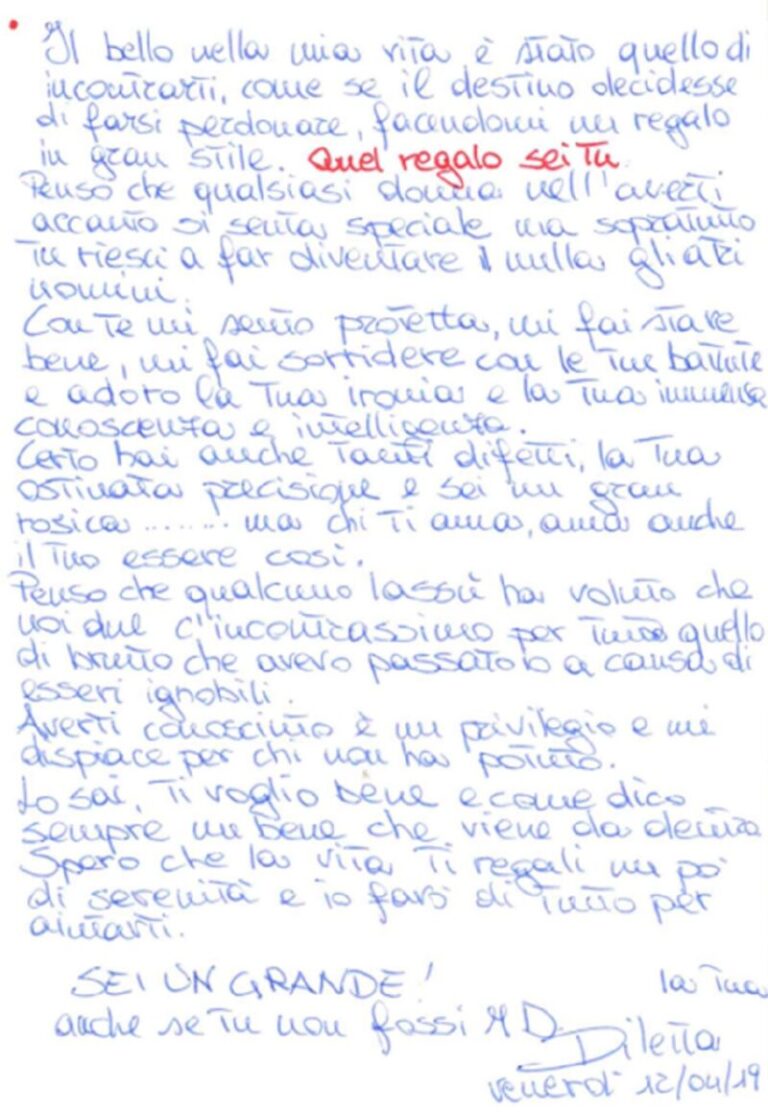 Il bello nella mia vita è stato quello di
incontrarti, come se il destino decidesse
di farsi perdonare, facendomi un regalo
in gran stile. Quel regalo sei Tu
Penso che qualsiasi donna nell'averti
accanto si senta speciale ma sopratutto
Tu riesci a far diventare il nulla gli altri
uomini.
Con Te mi sento protetta, mi fai stare
bene, mi fai sorridere con le Tue battute
e adoro la Tua ironia e la Tua immensa
conoscenza e intelligenza.
Certo hai anche Tanti difetti, la Tua
ostinata precisione e sei un gran
rosica ........ ma chi Ti ama, ama anche
il Tuo essere così.
Penso che qualcuno lassù ha voluto che
noi due c'incontrassimo per Tutto quello
di brutto che avevo passato a causa di
esseri ignobili.
Averti conosciuto è un privilegio e mi
dispiace per chi non ha potuto.
Lo sai, Ti voglio bene e come dico
sempre un bene che viene da dentro
Spero che la vita Ti regali un pò
di serenità e io farò di Tutto per
aiutarti.
SEI UN GRANDE! la Tua
anche se Tu non fossi M D Diletta
venerdì 12/04/19